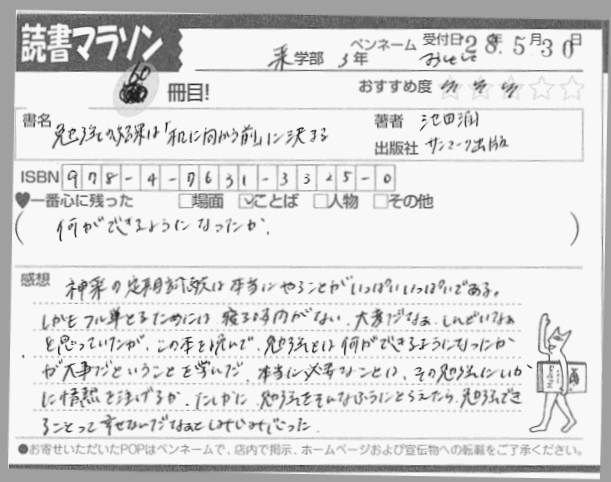 読書マラソン
薬学部 3年 ペンネーム おせして 受付日 28年 5月30日
60 冊目!
おすすめ度 ☆☆☆☆☆
書名 勉強の結果は「机に向かう前」に決まる
著者 池田潤
出版社 サンマーク出版
ISBN 978-4-7631-3325-0
♥一番心に残った □場面 ☑ことば □人物 □その他
(何ができるようになったか。)
感想 神薬の定期試験は本当にやることがいっぱいいっぱいである。
しかもフル単とるためには寝る時間がない、大変だなぁ、しんどいなぁ
と思っていたが、この本を読んで、勉強とは何ができるようになったか
が大事だということを学んだ。本当に必要なことは、その勉強にいか
に情熱を注げるか、たしかに勉強をそんなふうにとらえたら、勉強でき
ることって幸せなんだなぁとしみじみ思った。
●お寄せいただいたPOPはペンネームで、店内で掲示、ホームページおよび宣伝物への転載をご了承ください。